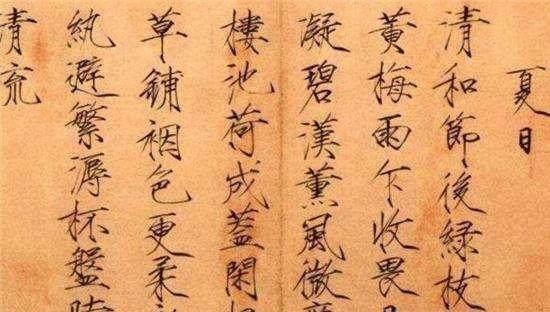 夏日
清和節後緑枝
黃梅雨乍收畏
凝碧漢薰風微
樓池荷成蓋閑
草鋪裀色更柔
紈避繁溽杯盤時
清流